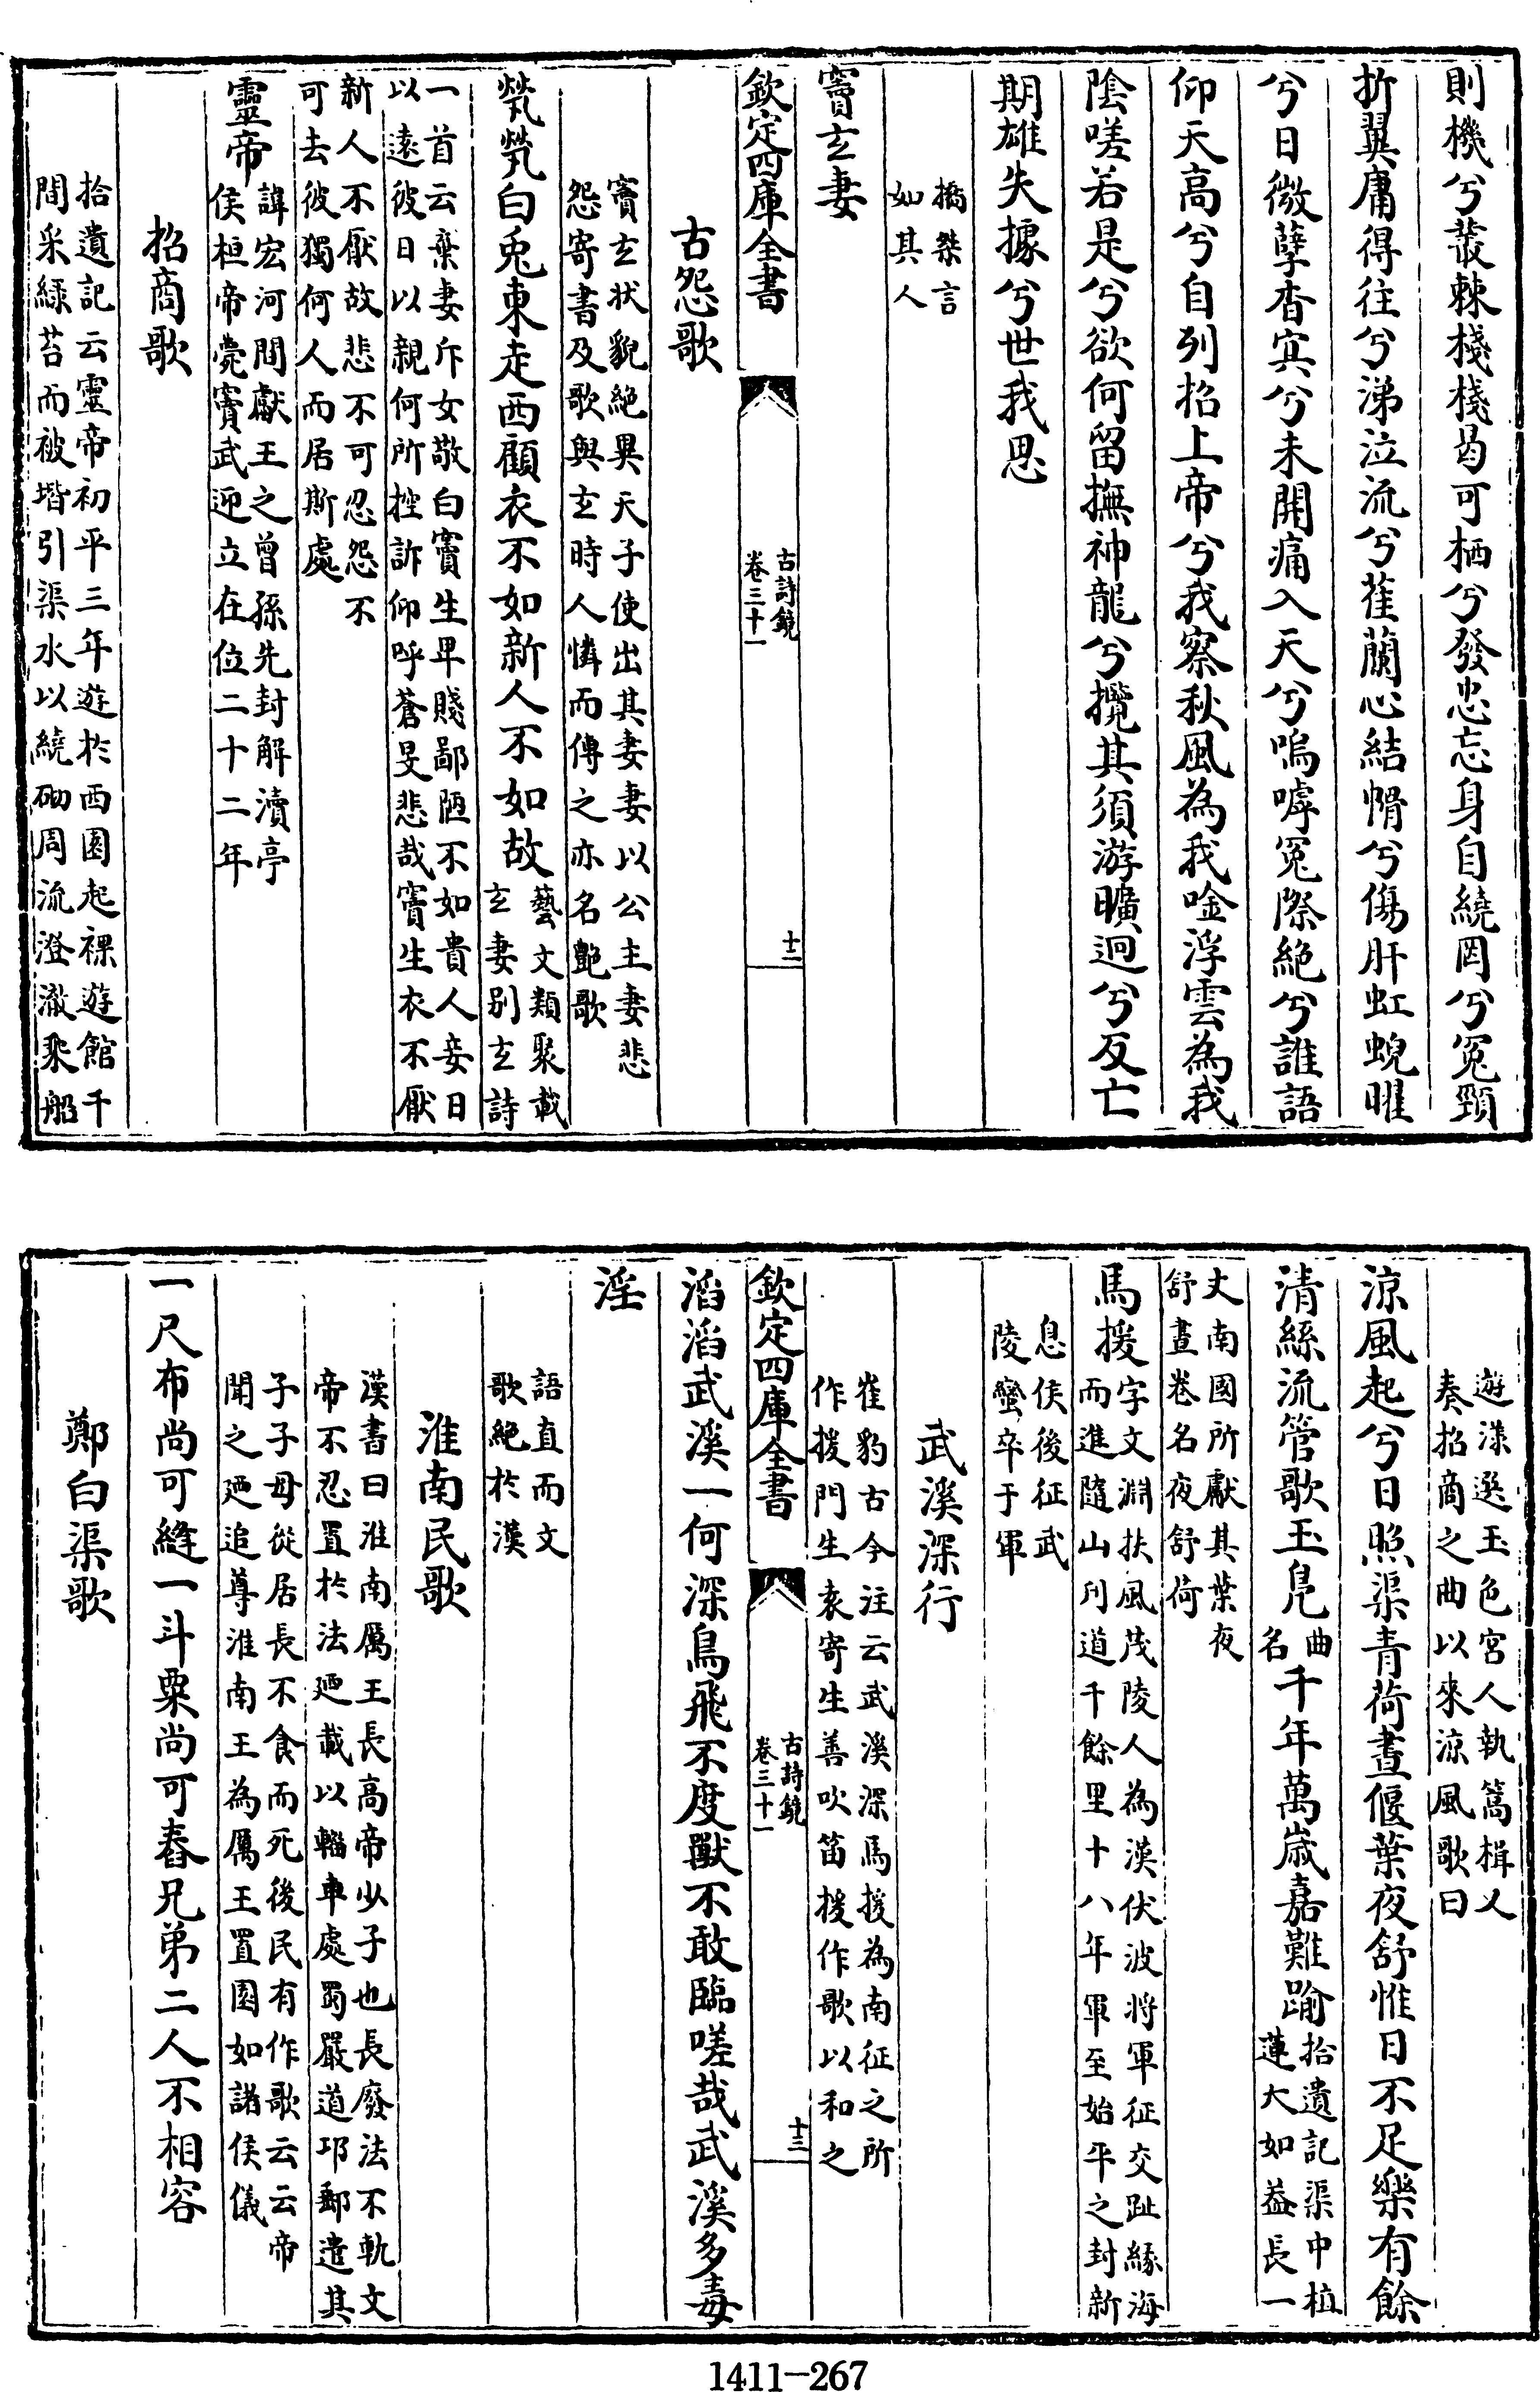 則機兮叢棘棧棧曷可栖兮發忠忘身自繞罔兮冤頸
折翼庸得往兮涕泣流兮萑蘭心結愲兮傷肝虹蜺曜
兮日微孽杳冥兮未開痛入天兮嗚嘑冤際絶兮誰語
仰天高兮自列招上帝兮我察秋風為我唫浮雲為我
陰嗟若是兮欲何留撫神龍兮攬其須游曠迥兮反亡
期雄失據兮世我思
擣桀言
如其人
竇𤣥妻
欽定四庫全書
古詩鏡
卷三十一
十二
古怨歌
竇𤣥状貌絶異天子使出其妻妻以公主妻悲
怨寄書及歌與𤣥時人憐而傳之亦名艶歌
煢煢白兎東走西顧衣不如新人不如故
藝文類聚載
𤣥妻别𤣥詩
一首云棄妻斥女敬白竇生卑賤鄙陋不如貴人妾日
以遠彼日以親何所控訴仰呼蒼旻悲哉竇生衣不厭
新人不厭故悲不可忍怨不
可去彼獨何人而居斯處
靈帝
諱宏河間獻王之曾孫先封解瀆亭
侯桓帝崩竇武迎立在位二十二年
招商歌
拾遺記云靈帝初平三年遊於西園起裸遊館千
間采緑苔而被堦引渠水以繞砌周流澄澈乘船
遊漾選玉色宮人執篙楫又
奏招商之曲以來涼風歌曰
涼風起兮日照渠青荷晝偃葉夜舒惟日不足樂有餘
清絲流管歌玉鳧
曲
名
千年萬歲嘉難踰
拾遺記渠中植
蓮大如葢長一
丈南國所獻其葉夜
舒晝卷名夜舒荷
馬援
字文淵扶風茂陵人為漢伏波將軍征交趾緣海
而進隨山刋道千餘里十八年軍至始平之封新
息侯後征武
陵蠻卒于軍
武溪深行
崔豹古今注云武溪深馬援為南征之所
作援門生袁寄生善吹笛援作歌以和之
欽定四庫全書
古詩鏡
卷三十一
十三
滔滔武溪一何深鳥飛不度獸不敢臨嗟哉武溪多毒
淫
語直而文
歌絶於漢
淮南民歌
漢書曰淮南厲王長髙帝少子也長廢法不軌文
帝不忍置於法廼載以輜車處蜀嚴道邛郵遣其
子子母從居長不食而死後民有作歌云云帝
聞之廼追尊淮南王為厲王置園如諸侯儀
一尺布尚可縫一斗粟尚可舂兄弟二人不相容
鄭白渠歌
1411-267